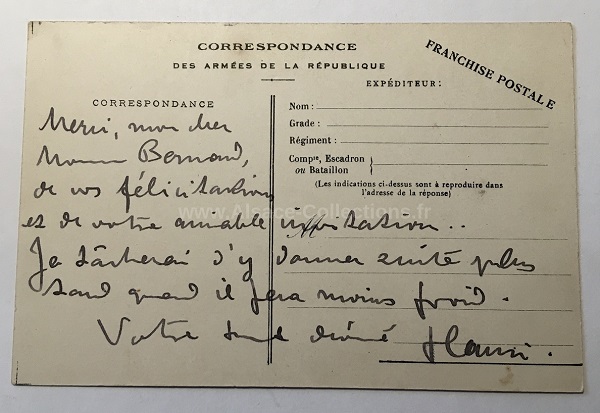 CORRESPONDANCE
DES ARMÉES DE LA RÉPUBLIQUE
FRANCHISE POSTALE
EXPÉDITEUR :
CORRESPONDANCE
Nom :
Grade :
Régiment :
Compie, Escadron
ou Bataillon
(Les indications ci-dessus sont à reproduire dans
l'adresse de la réponse)
Merci, mon cher
Bernard,
de vos félicitations
et de votre aimable invitation..
Je tâcherai d'y donner suite plus
tard quand il fera moins froid.
Votre dévoué Hansi.
www.Alsace-Collections.fr